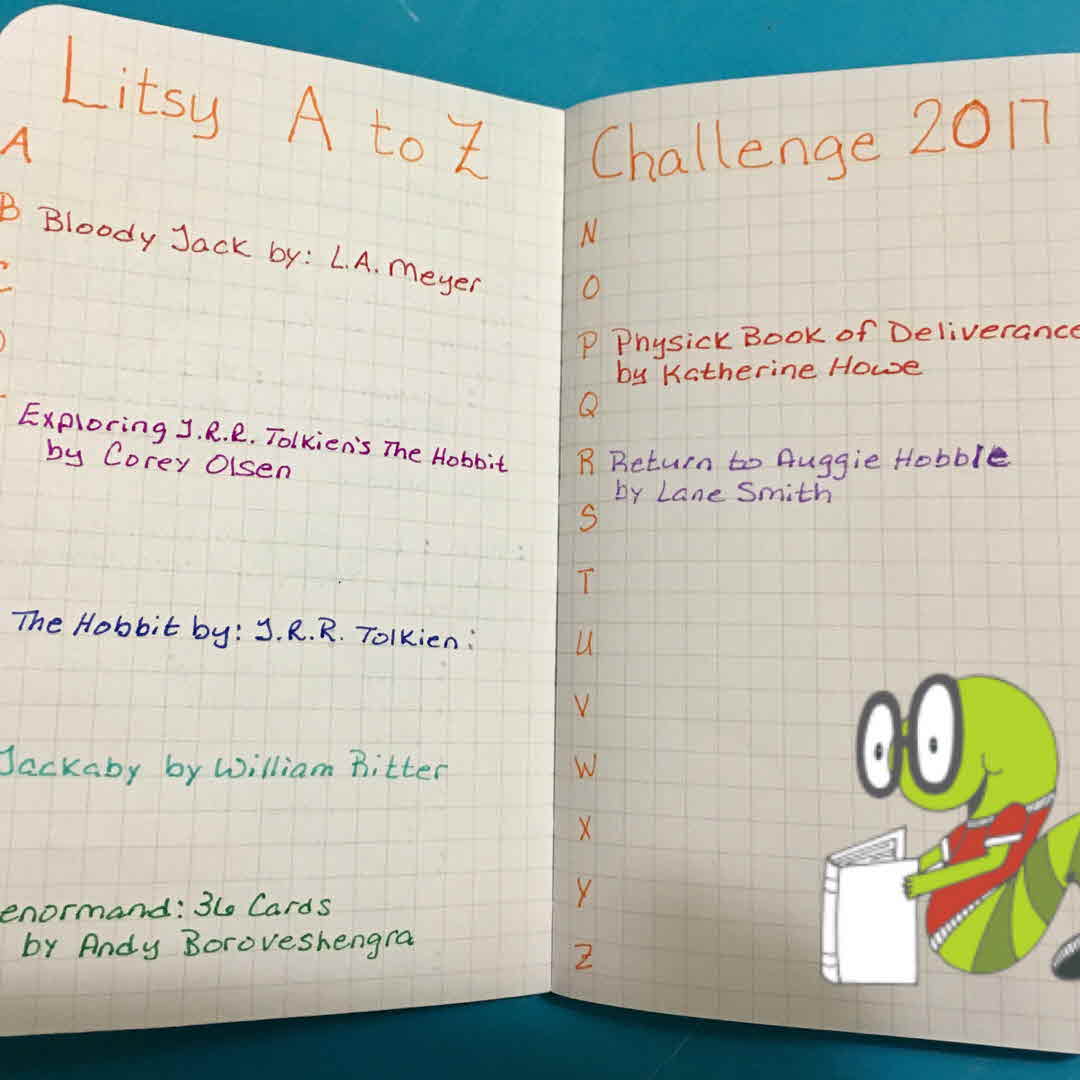 Litsy A to Z
A
B Bloody Jack by: L.A. Meyer
C
D
Exploring J.R.R. Tolkien's The Hobbit
by Corey Olsen
The Hobbit by: J.R.R. Tolkien:
Jackaby by William Ritter
enormand: 36 Cards
by Andy Boroveshengra
Challenge 2017
N
O
P Physick Book of Deliverance
by Katherine Howe
Q
R Return to Auggie Hobble
by Lane Smith
S
T
U
V
W
X
Y
Z